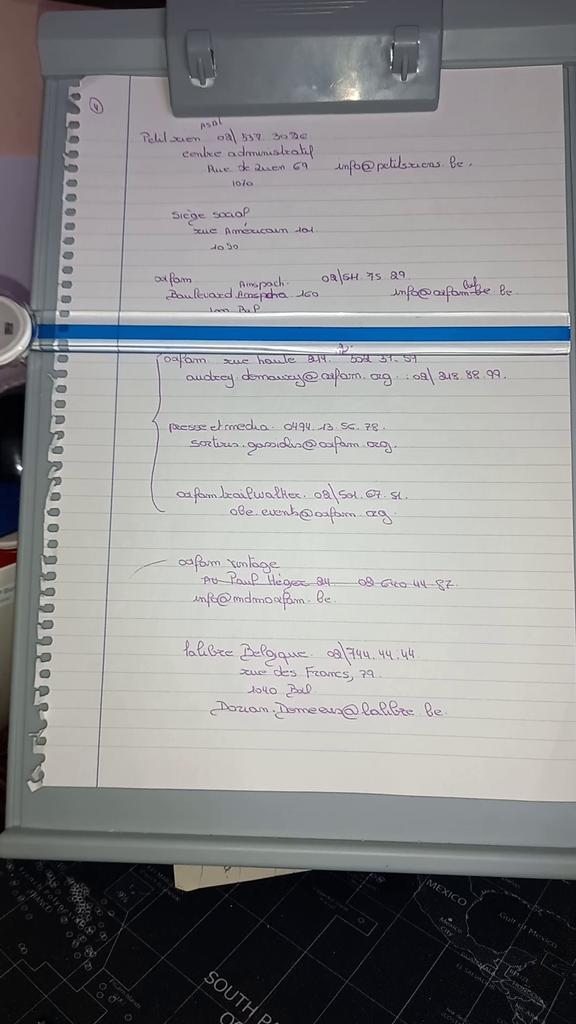 4
ASBL
Petitsriens 02/537.30.26
centre administratif
Rue de 69 info@petitsriens.be.
1070
Siège social
rue Américain 101
1050
oxfam Anspach. 02/511 75 29
Boulevard Anspcha 160 info@oxfam be.be
oxfam rue haute 502 37.57
audrey @oxfam.org : 02/ 213.88.99.
presse et media. 0494.13.56.78.
@oxfam.org.
oxfam trailwalker. 02/501.67.51.
obe.events@oxfam.org.
oxfam vintage
Av Paul Héger 24 02 640 44 87
info@mdmoxfam.be.
lalibre Belgique. 02/744.44.44.
rue des Francs, 79.
1040 Bxl
Dorian.Demeeus@lalibre.be.
MEXICO
Mexico City
Gulf of Mexico
SOUTH